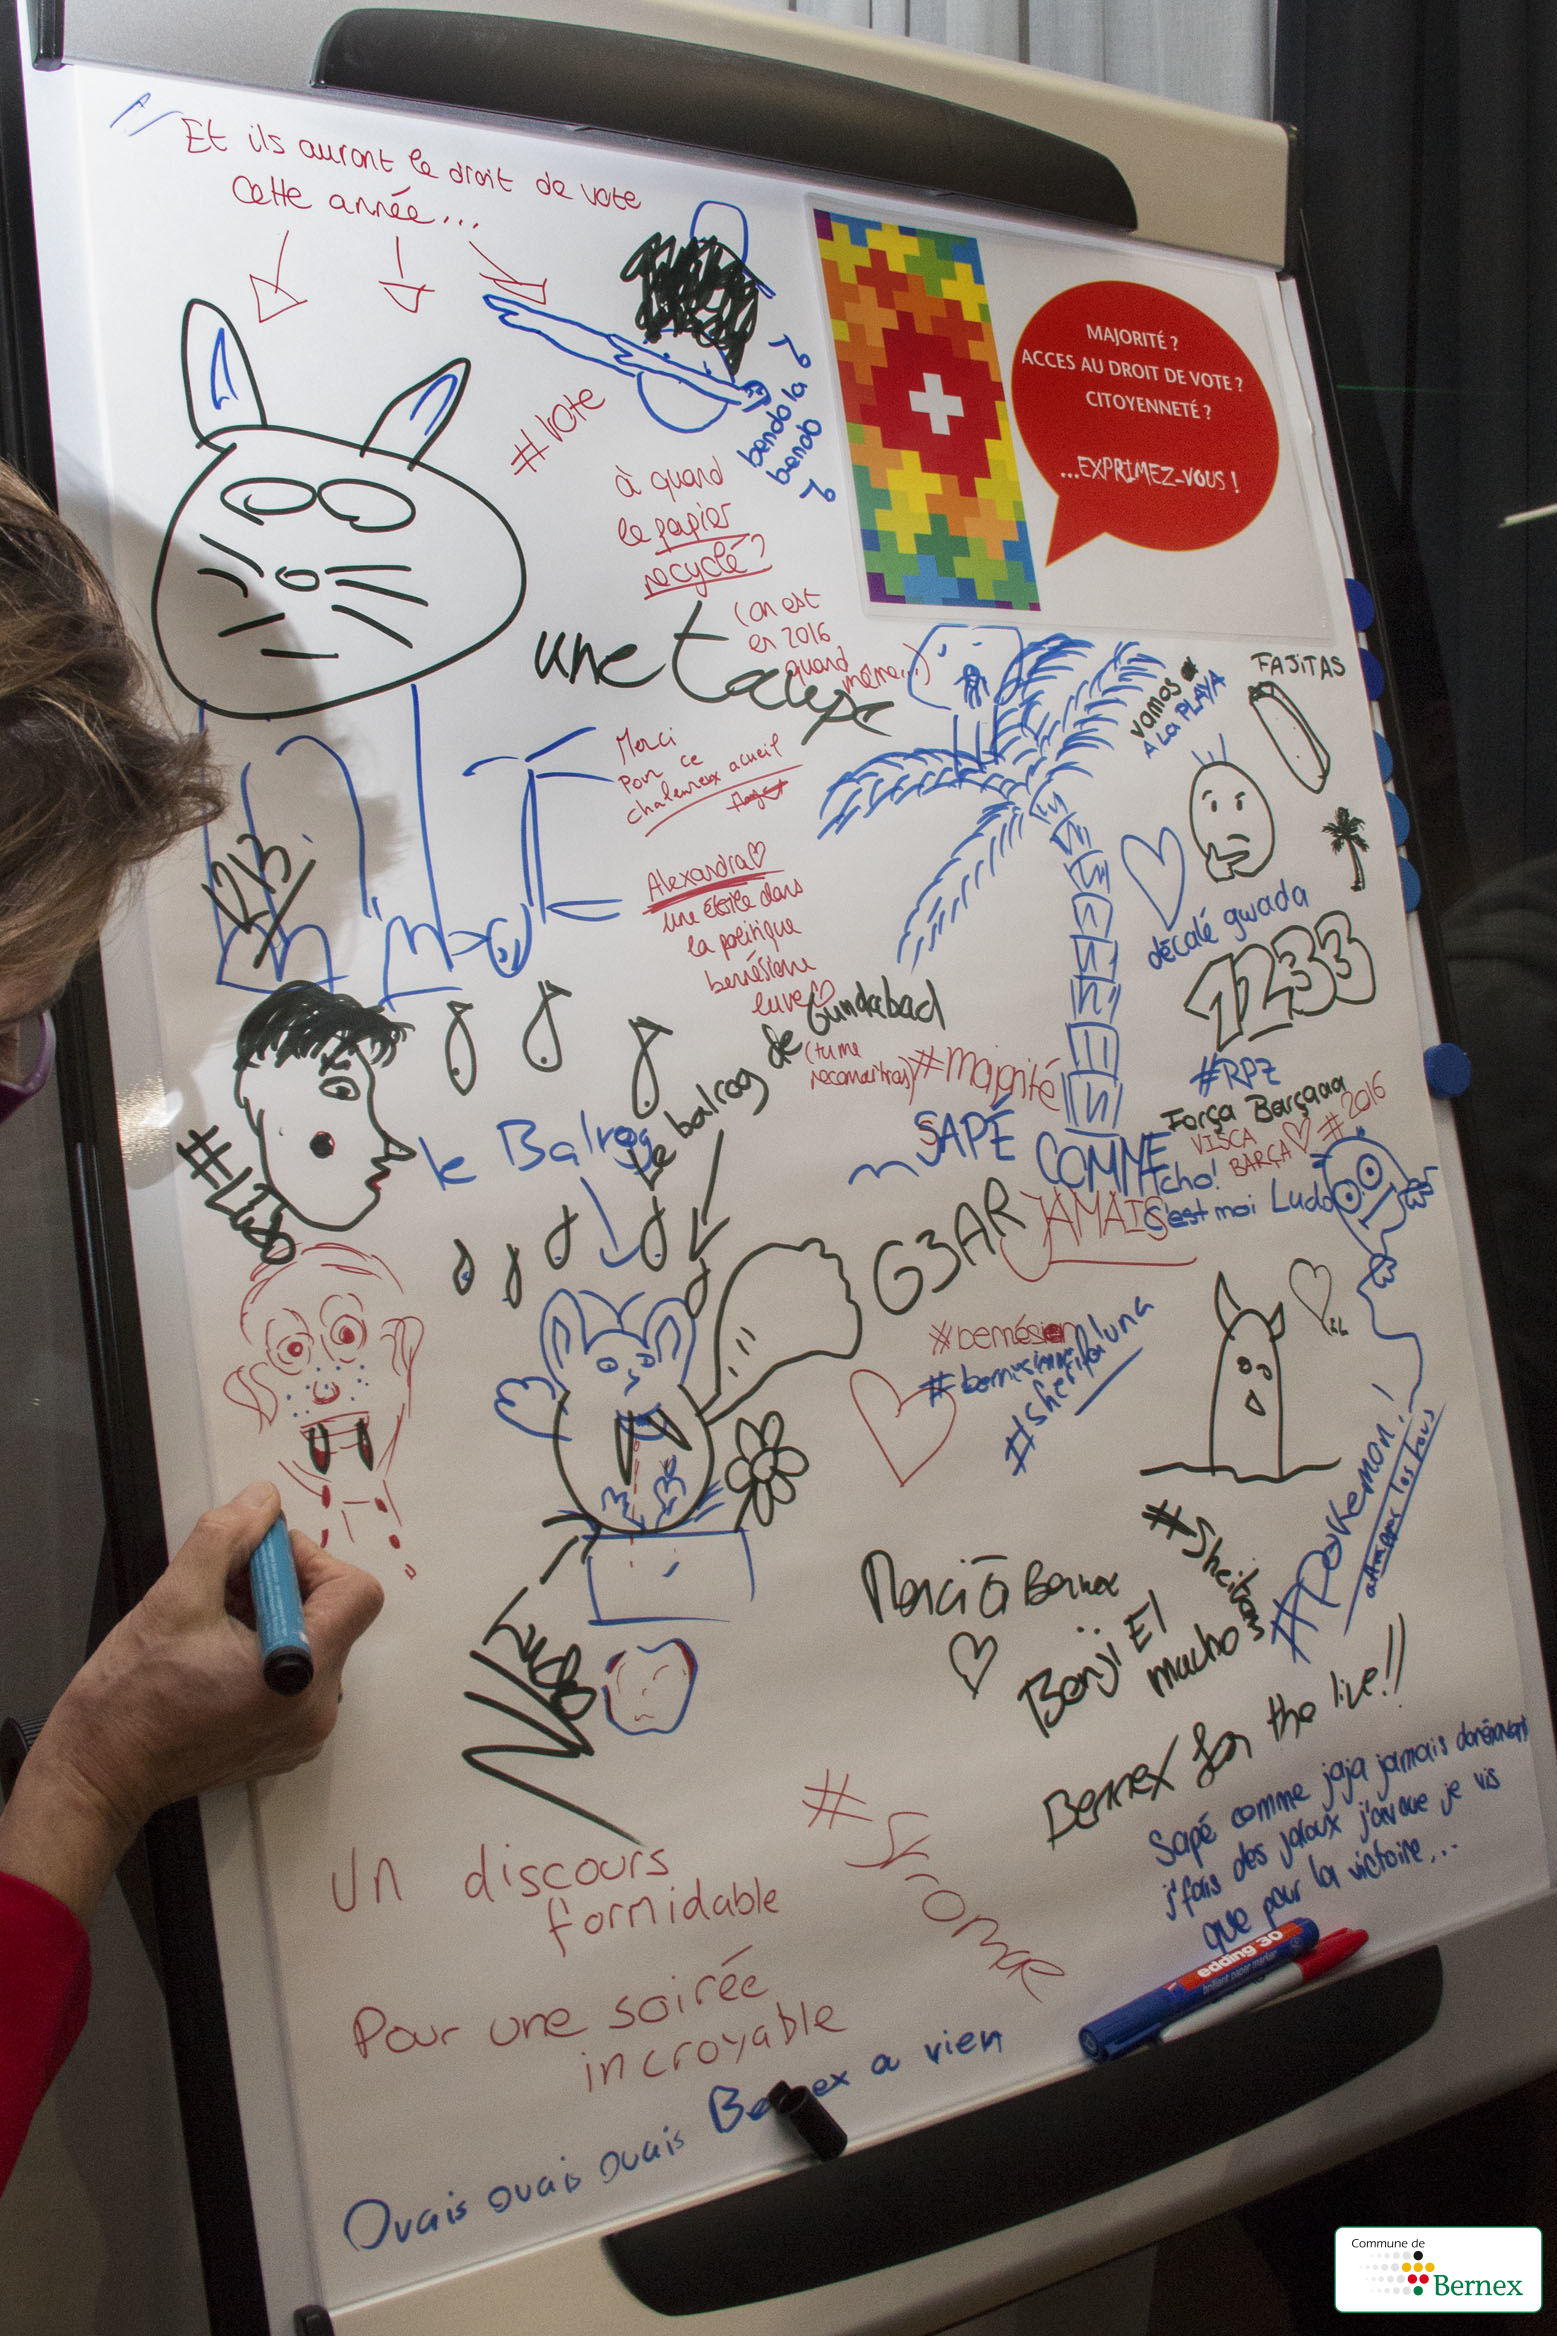 Et ils auront le droit de vote
Cette année...
#VOTE
To
bendo la
bendo
To
MAJORITÉ ?
ACCES AU DROIT DE VOTE ?
CITOYENNETÉ ?
...EXPRIMEZ-VOUS !
à quand
le papier
recyclé?
(on est
en 2016
quand
même...)
une taupe
Merci
Pour ce
chaleureux acueil
Alexandra♡
une étoile dans
la politique
bernésienne
luve♡
(tu me
reconnaitras)
vamos
A LA PLAYA
FAJITAS
décalé gwada
1233
#RPZ
Força Barçaaa
VISCA
BARÇA♡
#2016
#majorité
le Balrog
Le balrog de Gundabad
SAPÉ
COMME
JAMAIS
cho!
C'est moi Ludo
G3AR
#bernésien
#sherifaluna
#Pokemon!
#Sheitan
Merci à Bernex
♡
Benji El
macho
Bernex for the live!!
Sapé comme jaja jamais dorénavant
j'fais des jaloux j'avoue je vis
que pour la victoire...
Un discours
formidable
#Stromae
Pour une soirée
incroyable
Ouais ouais ouais Bernex a vien
edding 30
brilliant paper marker
Commune de
Bernex